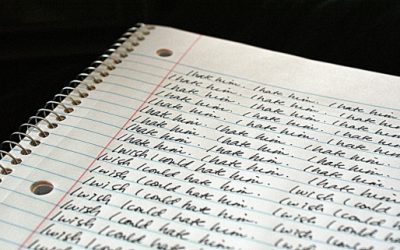 I hate him. I hate him. I hate him.
I hate him. I hate him. I hate him.
I hate him. I hate him. I hate him.
I hate him. I hate him. I hate him.
I hate him. I hate him. I hate him.
I hate him. I hate him. I hate him.
I hate him. I hate him. I hate him.
I wish I could hate him. I wish I could hate
I wish I could hate him. I wish I could hate
I wish I could hate him. I wish I could
I wish I could hate him. I wish I could
I wish I could hate him.
I wish I could hate him.